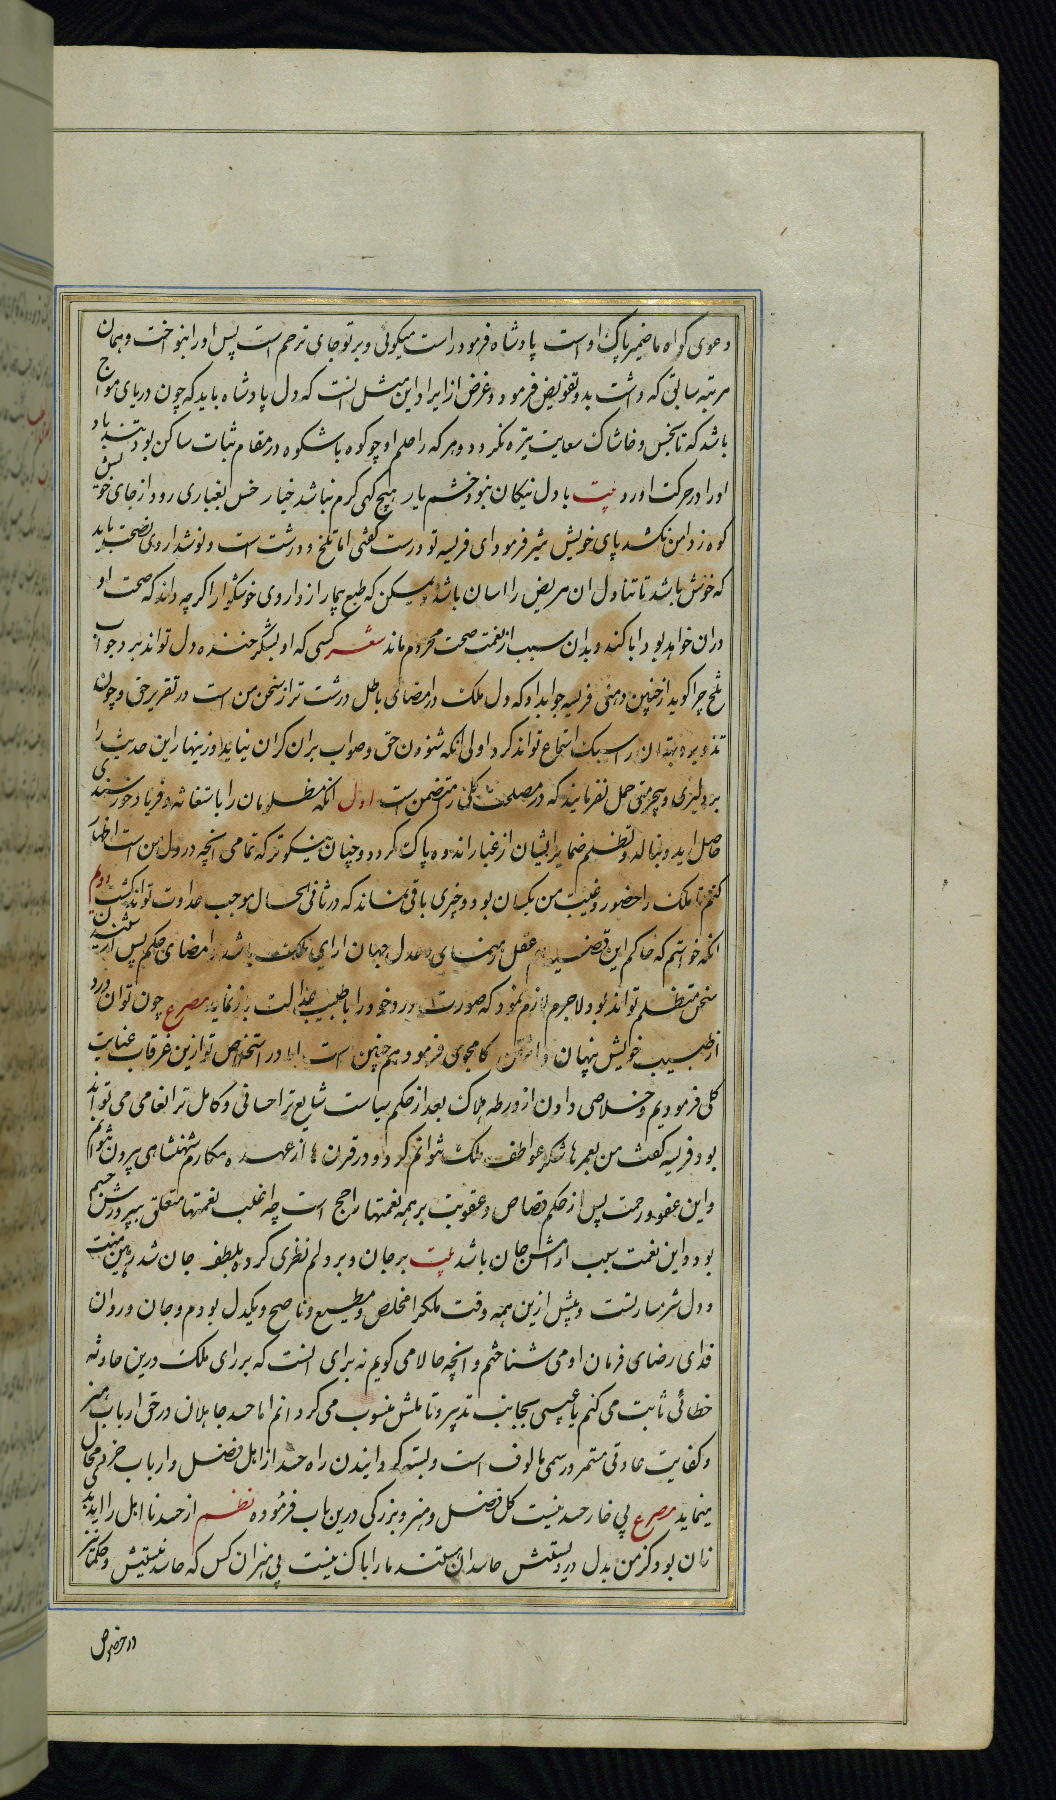 دعوی کواه ما ضمیر پاک اوست پادشاه فرمود راست میکوئی و بر تو جای ترحم است پس او را بنواخت و همان
مرتبه سابق که داشت بدو تفویض فرمود و غرض از ایراد این مثل انست که دل پادشاه باید که چون دریای مواج
باشد که تا بخس و خاشاک سعایت تیره نکردد و هر که را حلم او چو کوه باشکوه در مقام ثبات ساکن بود تندباد
او را در حرکت اورد بیت با دل نیکان نبود خشم یار هیچ کهی کرم نباشد خیار خس بغباری رود از جای خویش
کوه ز دامن نکشد پای خویش شیر فرمود ای فریسه تو درست کفتی اما تلخ و درشت است و نوشداروی نصیحت باید
که خوش باشد تا تناول ان مریض را اسان باشد ممکن که طبع بیمار از داروی خوشکوار اکر چه داند که صحت او
دران خواهد بود ابا کند و بدان سبب از نعمت صحت محروم ماند شعر کسی که او بشکرخنده دل تواند برد جواب
تلخ چرا کوید از چنین دهنی فریسه جواب داد که دل ملک در امضای باطل درشت تر از سخن من است در تقریر حق و چون
تزویر و بهتان را سبک استماع تواند کرد اولی انکه شنودن حق و صواب بران کران نیاید و زینهار این حدیث را
بر دلیری و بیحرمتی حمل نفرمایند که در مصلحت کلی را متضمن است اول انکه مظلومان را باستغاثه و فریاد خورسندی
حاصل اید و بناله و تظلم ضمایر ایشان از غبار اندوه پاک کردد و چنان نیکوتر که تمامی انچه در دل من است اظهار
کنم تا ملک را حضور و غیبت من یکسان بود و چیزی باقی نماند که در ثانی الحال موجب عداوت تواند کشت دوم
انکه خواستم که حاکم این قضیه هم عقل رهنمای و عدل جهان ارای ملک باشد و امضای حکم پس از شنیدن
سخن متظلم تواند بود لاجرم لازم نمود که صورت درد خود را با طبیب عدالت باز نماید مصرع چون توان درد
از طبیب خویش پنهان داشتن کامجوی فرمود هم چنین است اما در استخلاص تو ازین غرقاب عنایت
کلی فرمودیم و خلاصی دادن از ورطه هلاک بعد از حکم سیاست شایع تر احسانی و کامل تر انعامی می تواند
بود فریسه کفت من بعمرها شکر عواطف ملک نتوانم کرد و در قرن ها از عهده مکارم شهنشاهی بیرون نتوانم
و این عفو و رحمت پس از حکم قصاص و عقوبت بر همه نعمتها راجح است چه اغلب نعمتها متعلق بپرورش جسم
بود و این نعمت سبب ارامش جان باشد بیت بر جان و بر دلم نظری کرده بلطف جان شد رهین منت
و دل شرمسار تست و پیش ازین همه وقت ملک را مخلص و مطیع و ناصح و یکدل بودم و جان و روان
فدای رضای فرمان او می شناختم و انچه حالا می کویم نه برای انست که بر رای ملک درین حادثه
خطائی ثابت می کنم یا عیبی بجانب تدبیر و تاملش منسوب می کردانم اما حسد جاهلان در حق ارباب هنر
و کفایت عادتی مستمر و رسمی مالوف است و بسته کردانیدن راه حسد از اهل فضل و ارباب خرد محال
مینماید مصرع بی خار حسد نیست کل فضل و هنر و بزرکی درین باب فرموده نظم از حسد نااهل را اید بدی
زان بود کز من بدل درد یستش حاسدان هستند ما را باک نیست بی هنر ان کس که حاسد نیستیش و حکما نیز
در خصوص